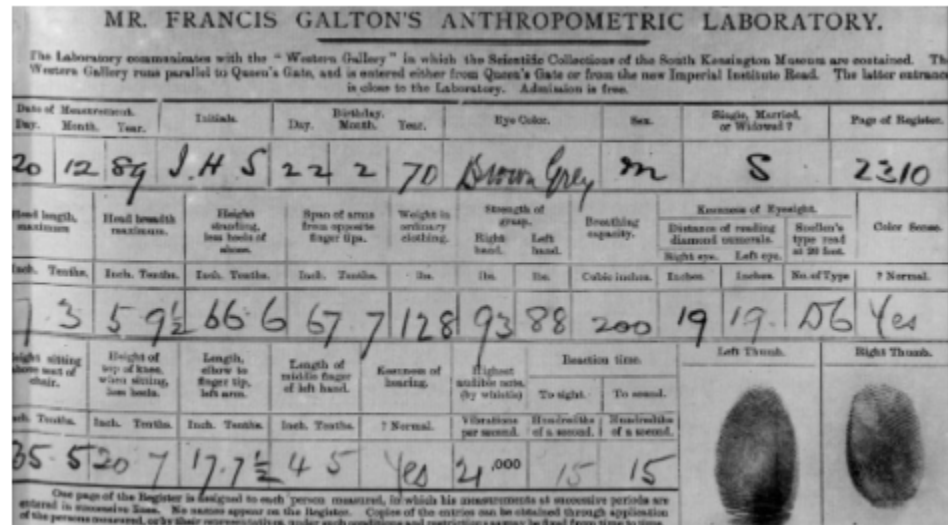 MR. FRANCIS GALTON'S ANTHROPOMETRIC LABORATORY.
The Laboratory communicates with the "Western Gallery" in which the Scientific Collections of the South Kensington Museum are contained. The
Western Gallery runs parallel to Queen's Gate, and is entered either from Queen's Gate or from the new Imperial Institute Road. The latter entrance
is close to the Laboratory. Admission is free.
Date of Measurement. Initials. Birthday. Eye Color. Sex. Single, Married, or Widowed? Page of Register.
Day. Month. Year. Day. Month. Year.
20 12 89 J. H S 22 2 70 Brown Grey m S 2310
Head length, maximum Head breadth maximum. Height standing, less heels of shoes. Span of arms from opposite finger tips. Weight in ordinary clothing. Strength of grasp. Breathing capacity. Keenness of Eyesight. Color Sense.
Right hand. Left hand. Distance of reading diamond numerals. Snellen's type read at 20 feet.
Right eye. Left eye.
Inch. Tenths. Inch. Tenths. Inch. Tenths. Inch. Tenths. lbs. lbs. lbs. Cubic inches. Inches. Inches. No. of Type ? Normal.
7 . 3 5 . 9½ 66 . 6 67 . 7 128 93 88 200 19 19 . D6 Yes
Height sitting above seat of chair. Height of top of knee, when sitting, less heels. Length, elbow to finger tip, left arm. Length of middle finger of left hand. Keenness of hearing. Highest audible note. (by whistle) Reaction time. Left Thumb. Right Thumb.
To sight. To sound.
Inch. Tenths. Inch. Tenths. Inch. Tenths. Inch. Tenths. ? Normal. Vibrations per second. Hundredths of a second. Hundredths of a second.
35 . 5 20 7 17 . 7½ 4 5 Yes 21 ,000 15 15
One page of the Register is assigned to each person measured, in which his measurements at successive periods are
entered in successive lines. No names appear on the Register. Copies of the entries can be obtained through application
of the persons measured, or by their representatives, under such conditions and restrictions as may be fixed from time to time.